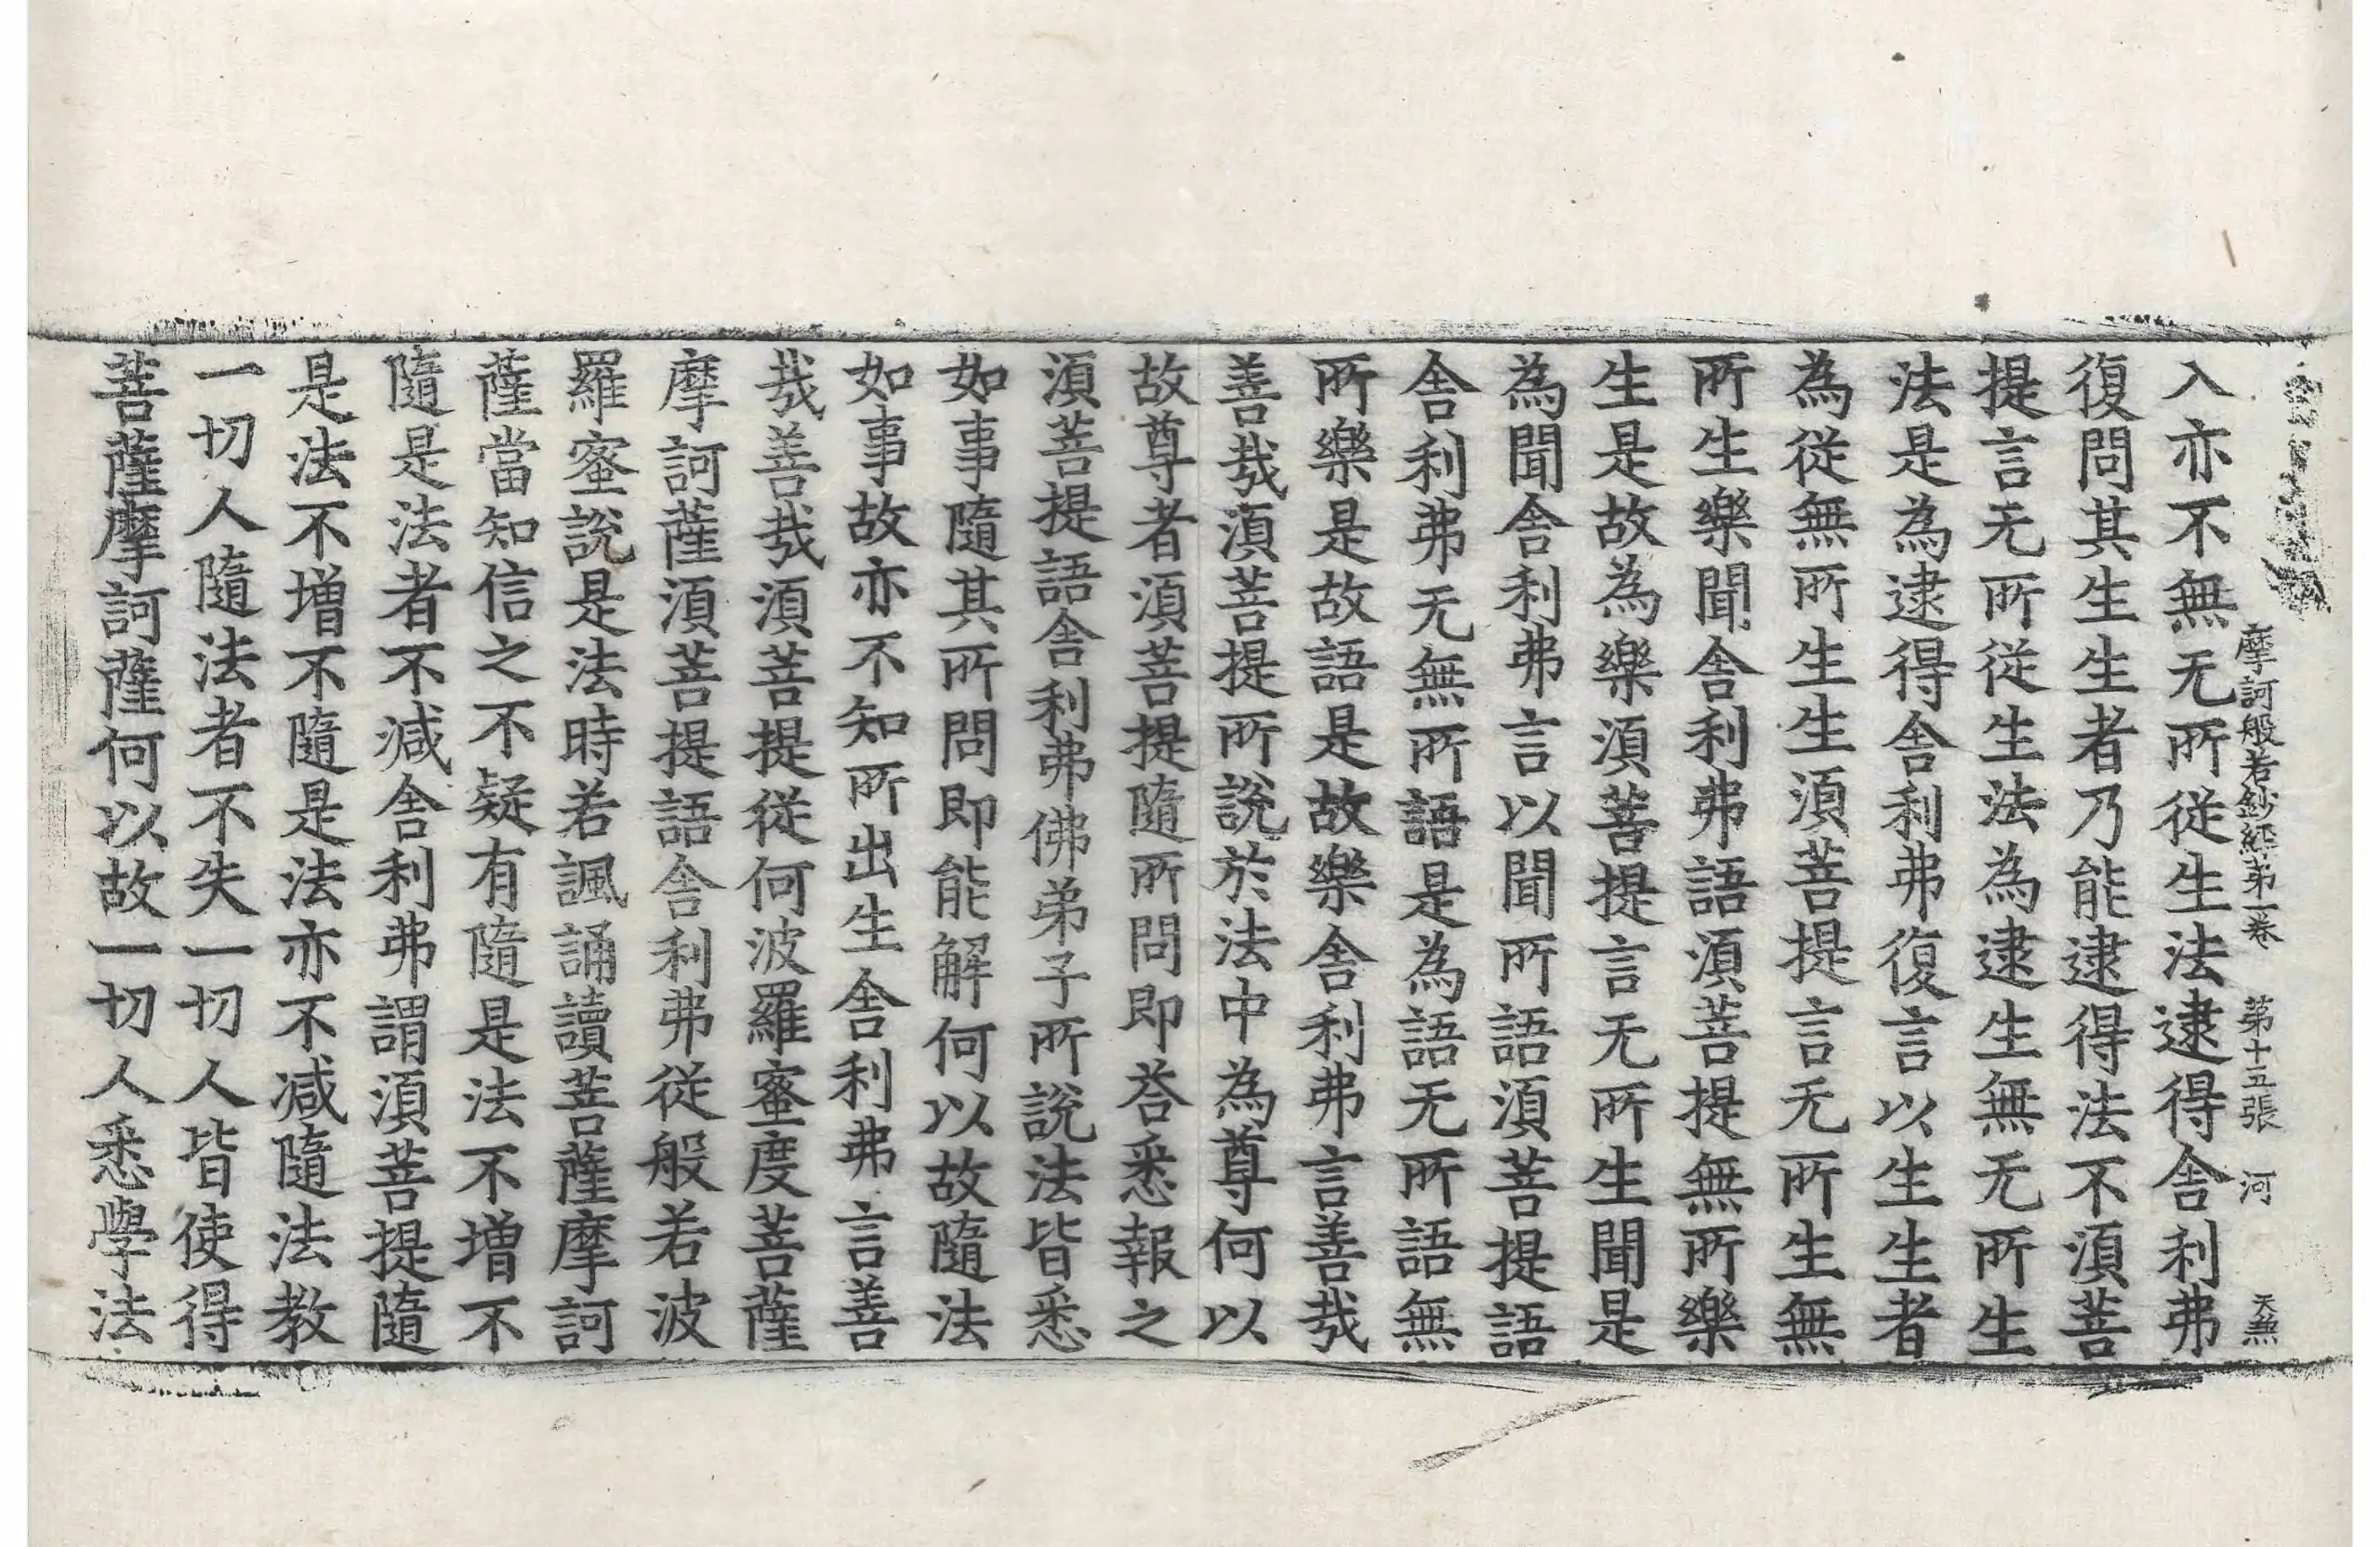 摩訶般若鈔經第一卷　第十五張　河　天無
入亦不無无所從生法逮得舍利弗
復問其生生者乃能逮得法不須菩
提言无所從生法為逮生無无所生
法是為逮得舍利弗復言以生生者
為從無所生生生須菩提言无所生無
所生樂聞舍利弗語須菩提無所樂
生是故為樂須菩提言无所生聞是
為聞舍利弗言以聞所語須菩提語
舍利弗无無所語是為語无所語無
所樂是故語是故樂舍利弗言善哉
善哉須菩提所說於法中為尊何以
故尊者須菩提隨所問即荅悉報之
須菩提語舍利弗佛弟子所說法皆悉
如事隨其所問即能解何以故隨法
如事故亦不知所出生舍利弗言善
哉善哉須菩提從何波羅蜜度菩薩
摩訶薩須菩提語舍利弗從般若波
羅蜜說是法時若諷誦讀菩薩摩訶
薩當知信之不疑有隨是法不增不
隨是法者不減舍利弗謂須菩提隨
是法不增不隨是法亦不減隨法教
一切人隨法者不失一切人皆使得
菩薩摩訶薩何以故一切人悉學法